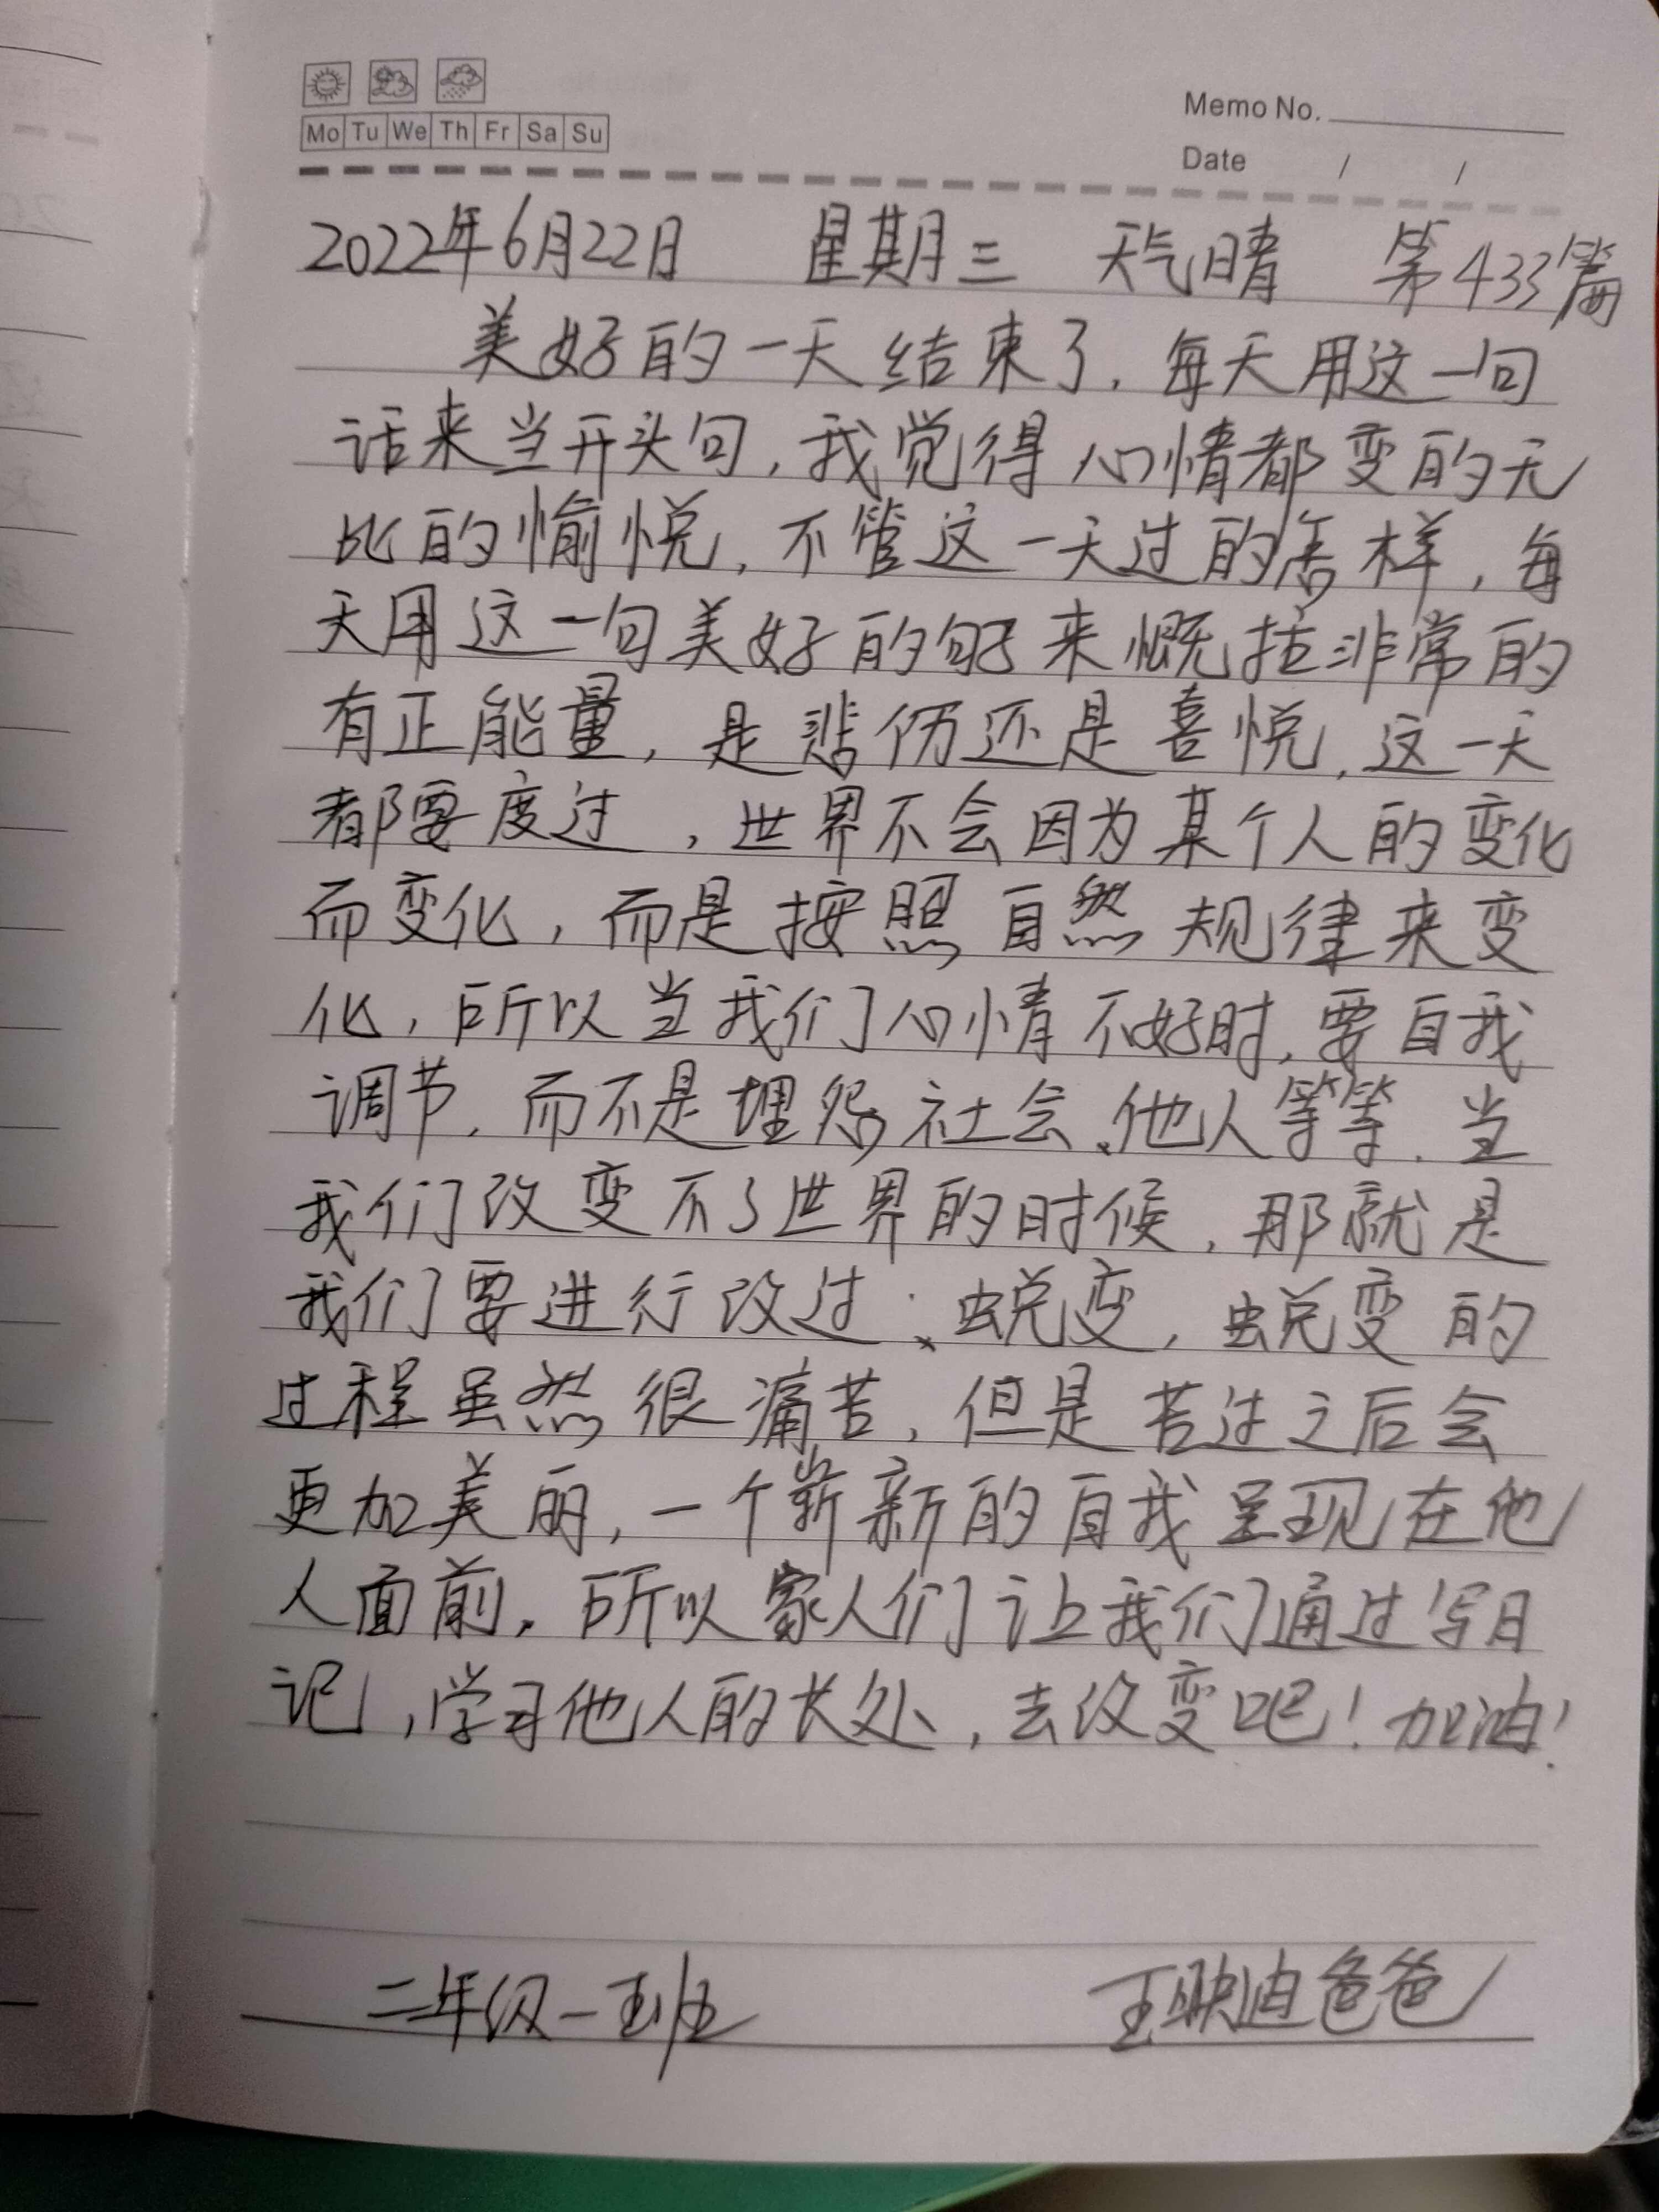 Mo Tu We Th Fr Sa Su
Memo No.
Date / /
2022年6月22日 星期三 天气晴 第433篇
美好的一天结束了,每天用这一句
话来当开头句,我觉得心情都变的无
比的愉悦,不管这一天过的怎样,每
天用这一句美好的句子来概括非常的
有正能量,是悲伤还是喜悦,这一天
都要度过,世界不会因为某个人的变化
而变化,而是按照自然规律来变
化,所以当我们心情不好时,要自我
调节,而不是埋怨社会、他人等等.当
我们改变不了世界的时候,那就是
我们要进行改过、蜕变,蜕变的
过程虽然很痛苦,但是苦过之后会
更加美丽,一个崭新的自我呈现在他
人面前.所以家人们让我们通过写日
记,学习他人的长处,去改变吧!加油!
二年级一班 王映迪爸爸